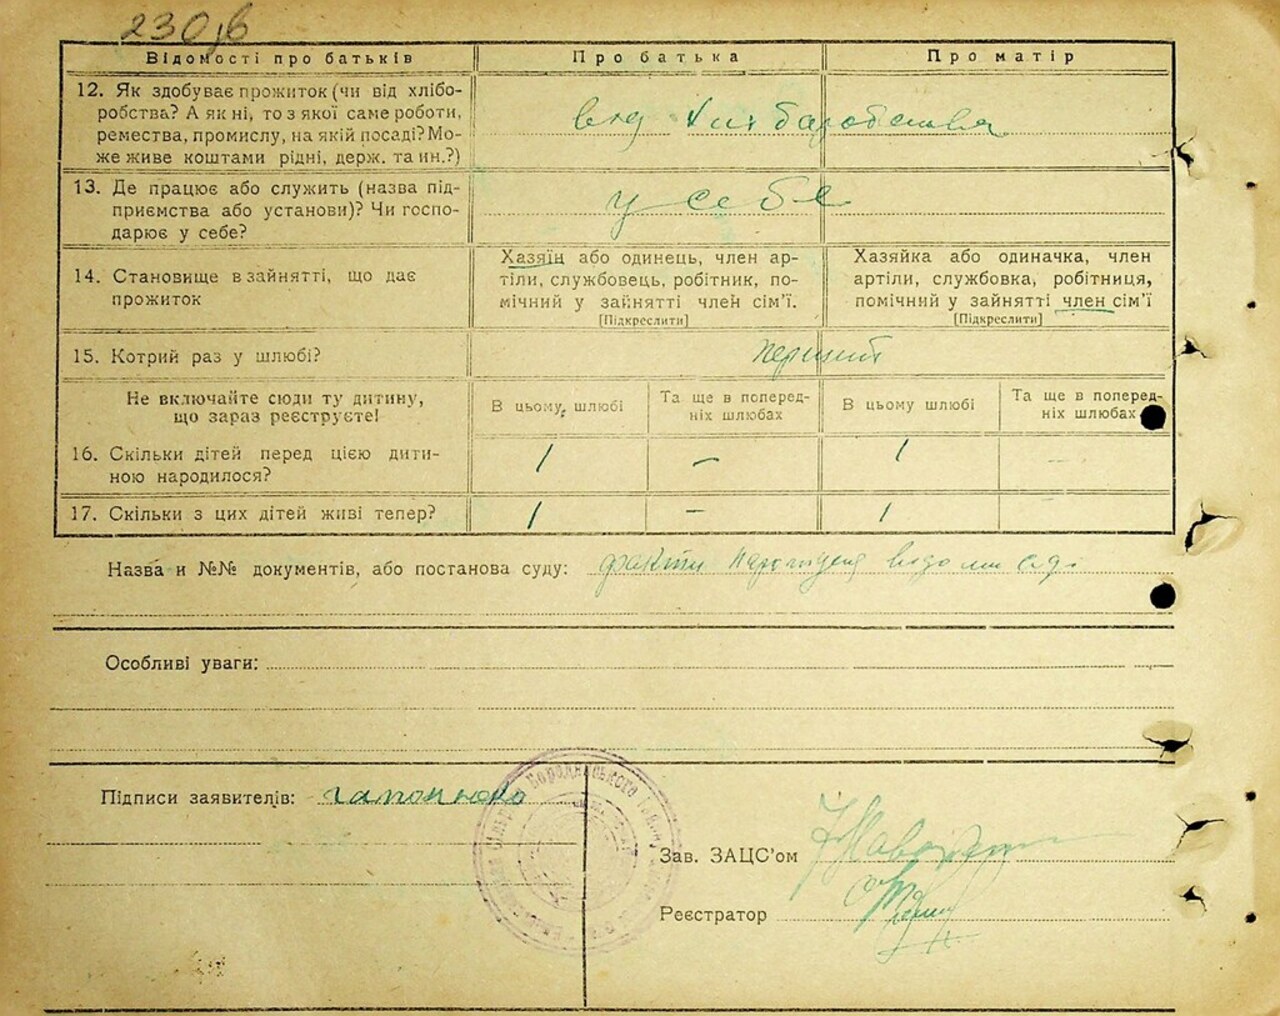 230 зв
Відомості про батьків
Про батька
Про матір
12. Як здобуває прожиток (чи від хлібо-
робства? А як ні, то з якої саме роботи,
ремества, промислу, на якій посаді? Мо-
же живе коштами рідні, держ. та ин.?)
від хліборобства
13. Де працює або служить (назва під-
приємства або установи)? Чи госпо-
дарює у себе?
у себе
14. Становище в зайнятті, що дає
прожиток
Хазяїн або одинець, член ар-
тіли, службовець, робітник, по-
мічний у зайнятті член сім'ї.
[Підкреслити]
Хазяйка або одиначка, член
артіли, службовка, робітниця,
помічний у зайнятті член сім'ї
[Підкреслити]
15. Котрий раз у шлюбі?
перший
Не включайте сюди ту дитину,
що зараз реєструєте!
В цьому шлюбі
Та ще в поперед-
ніх шлюбах
В цьому шлюбі
Та ще в поперед-
ніх шлюбах
16. Скільки дітей перед цією дити-
ною народилося?
1 – 1 –
17. Скільки з цих дітей живі тепер?
1 – 1 –
Назва и №№ документів, або постанова суду: факти
Особливі уваги:
Підписи заявителів:
Зав. ЗАЦС'ом
Реєстратор